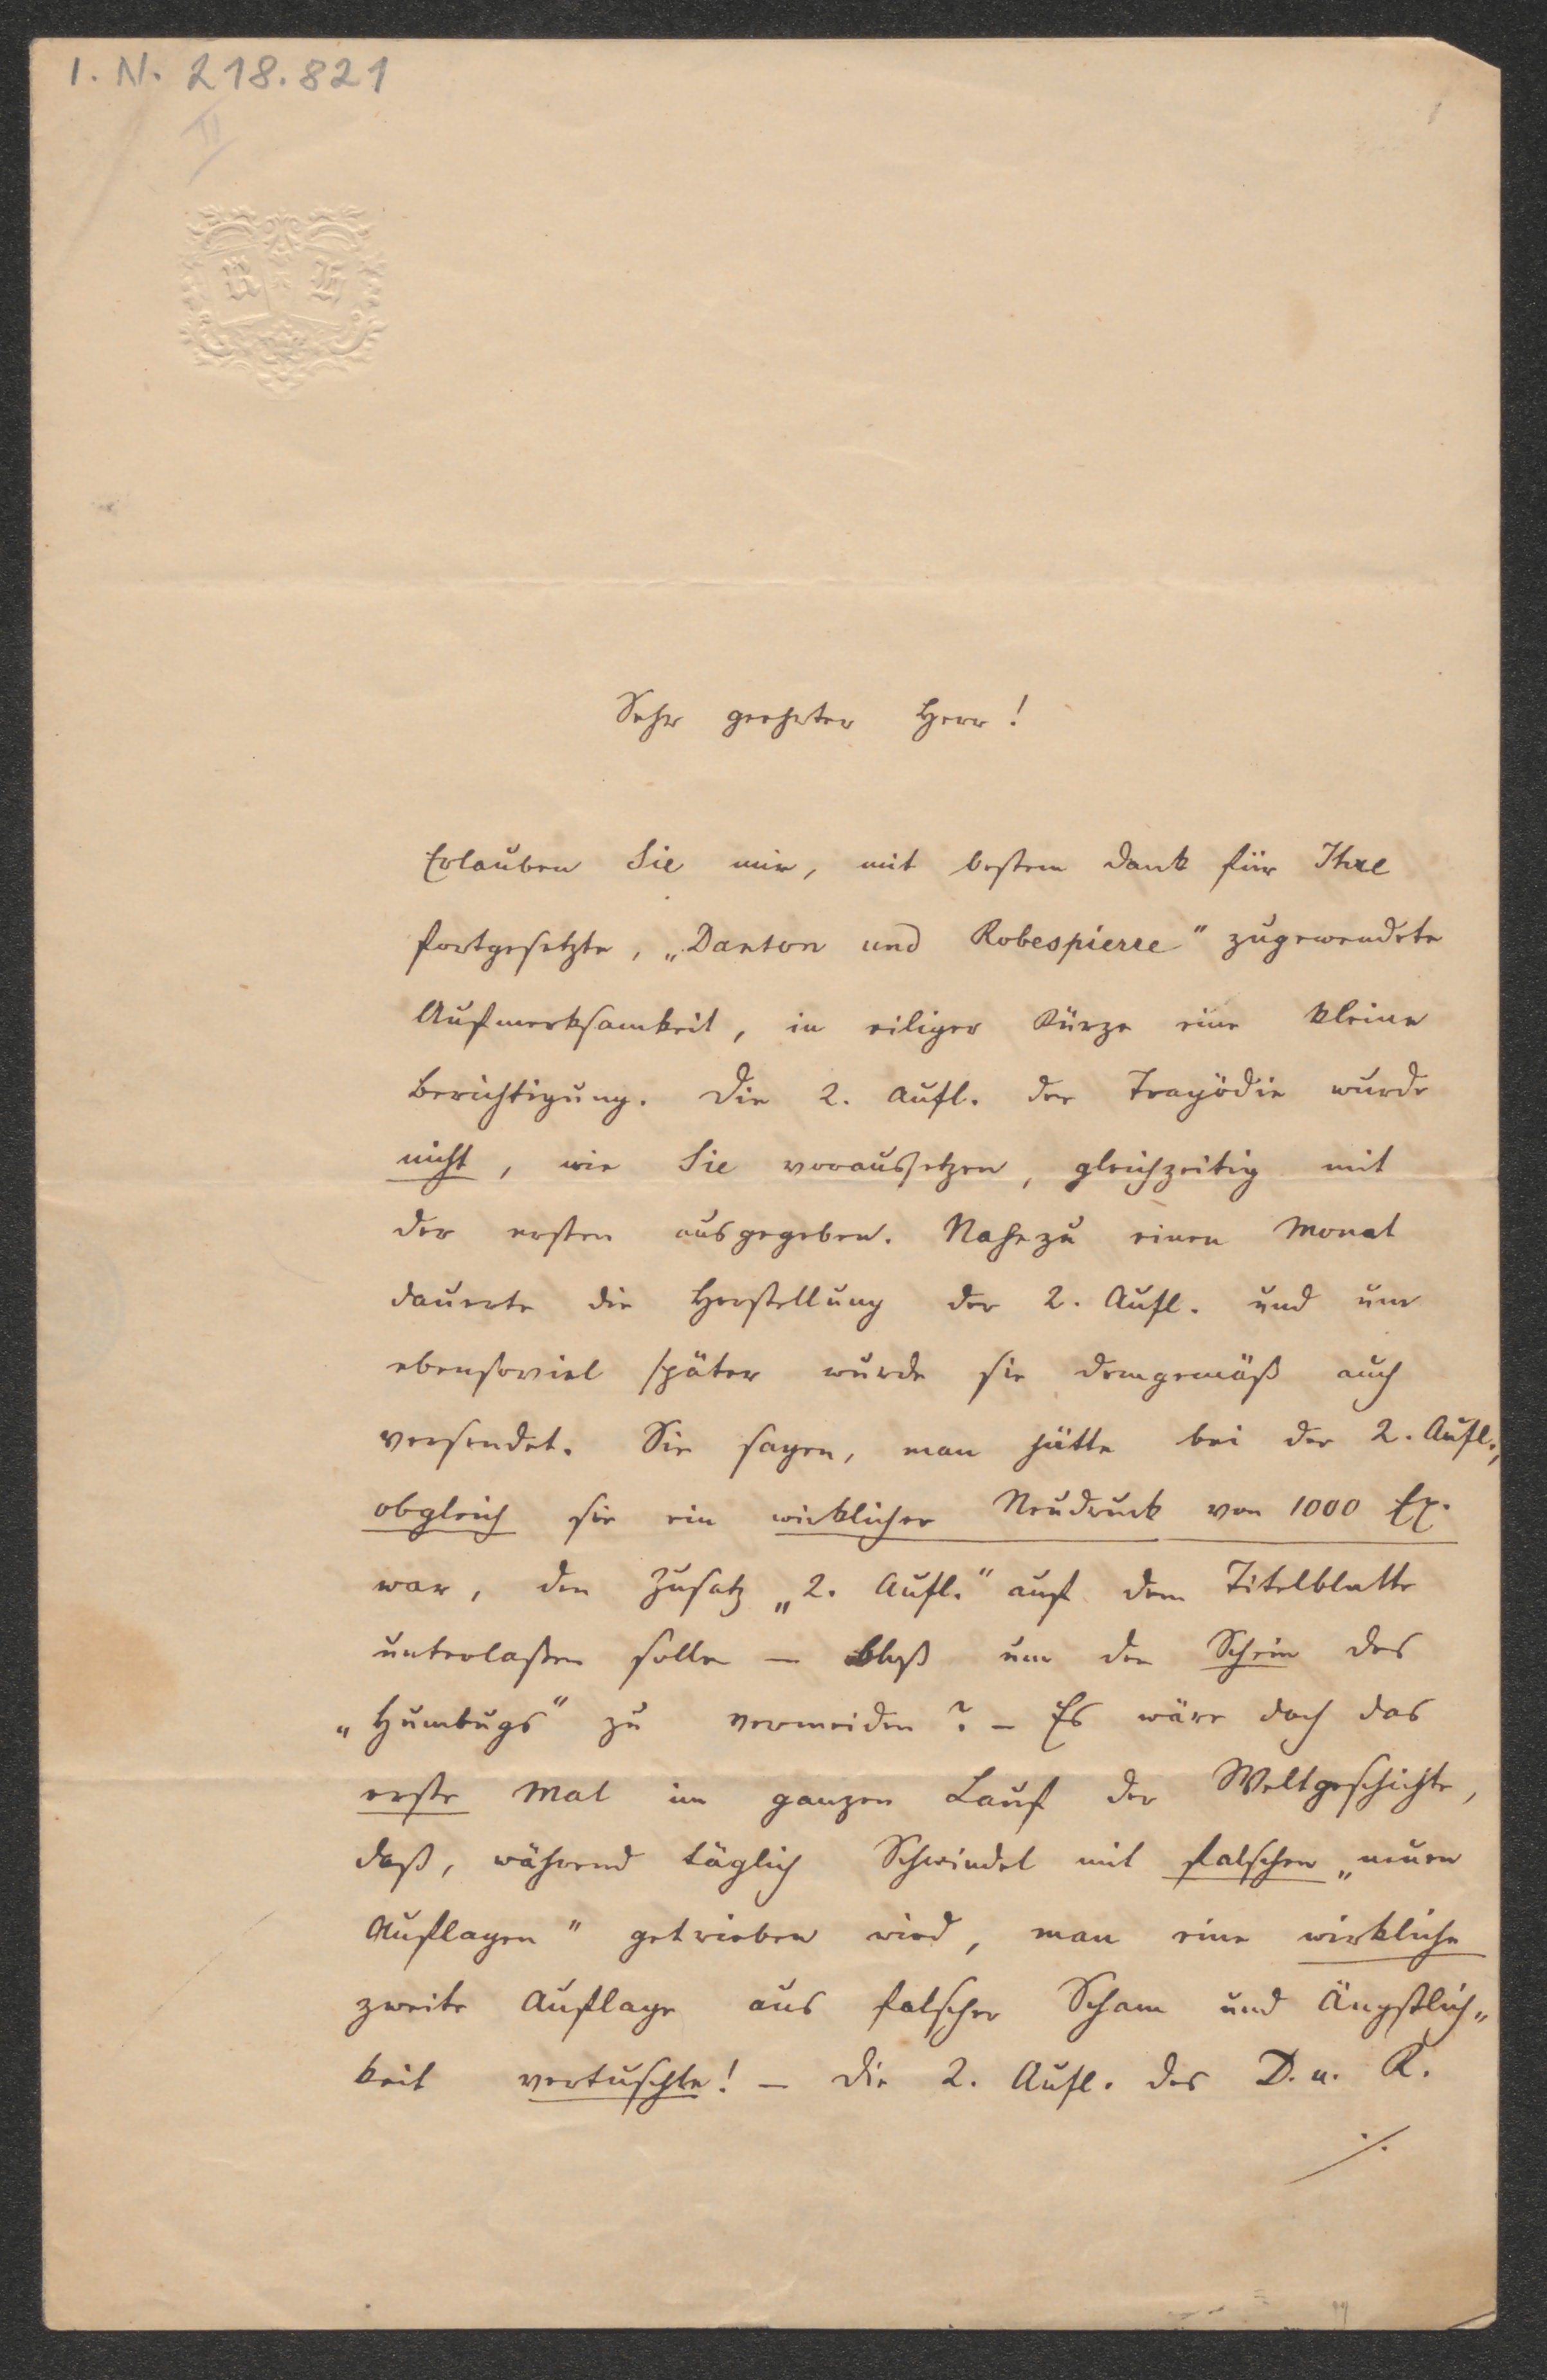 I. N. 218.821
II
R H
Sehr geehrter Herr!
Erlauben Sie mir, mit bestem Dank für Ihre
fortgesetzte, „Danton und Robespierre" zugewendete
Aufmerksamkeit, in eiliger Kürze eine kleine
Berichtigung. Die 2. Aufl. der Tragödie wurde
nicht, wie Sie voraussetzen, gleichzeitig mit
der ersten ausgegeben. Nahezu einen Monat
dauerte die Herstellung der 2. Aufl. und um
ebensoviel später wurde sie demgemäß auch
versendet. Sie sagen, man hätte bei der 2. Aufl.,
obgleich sie ein wirklicher Neudruck von 1000 Ex.
war, den Zusatz „2. Aufl." auf dem Titelblatte
unterlaßen sollen – bloß um den Schein des
„Humbugs" zu vermeiden? – Es wäre doch das
erste Mal im ganzen Lauf der Weltgeschichte,
daß, während täglich Schwindel mit falschen „neuen
Auflagen" getrieben wird, man eine wirkliche
zweite Auflage aus falscher Scham und Ängstlich„
keit vertuschte! – Die 2. Aufl. des D. u. R.
./.